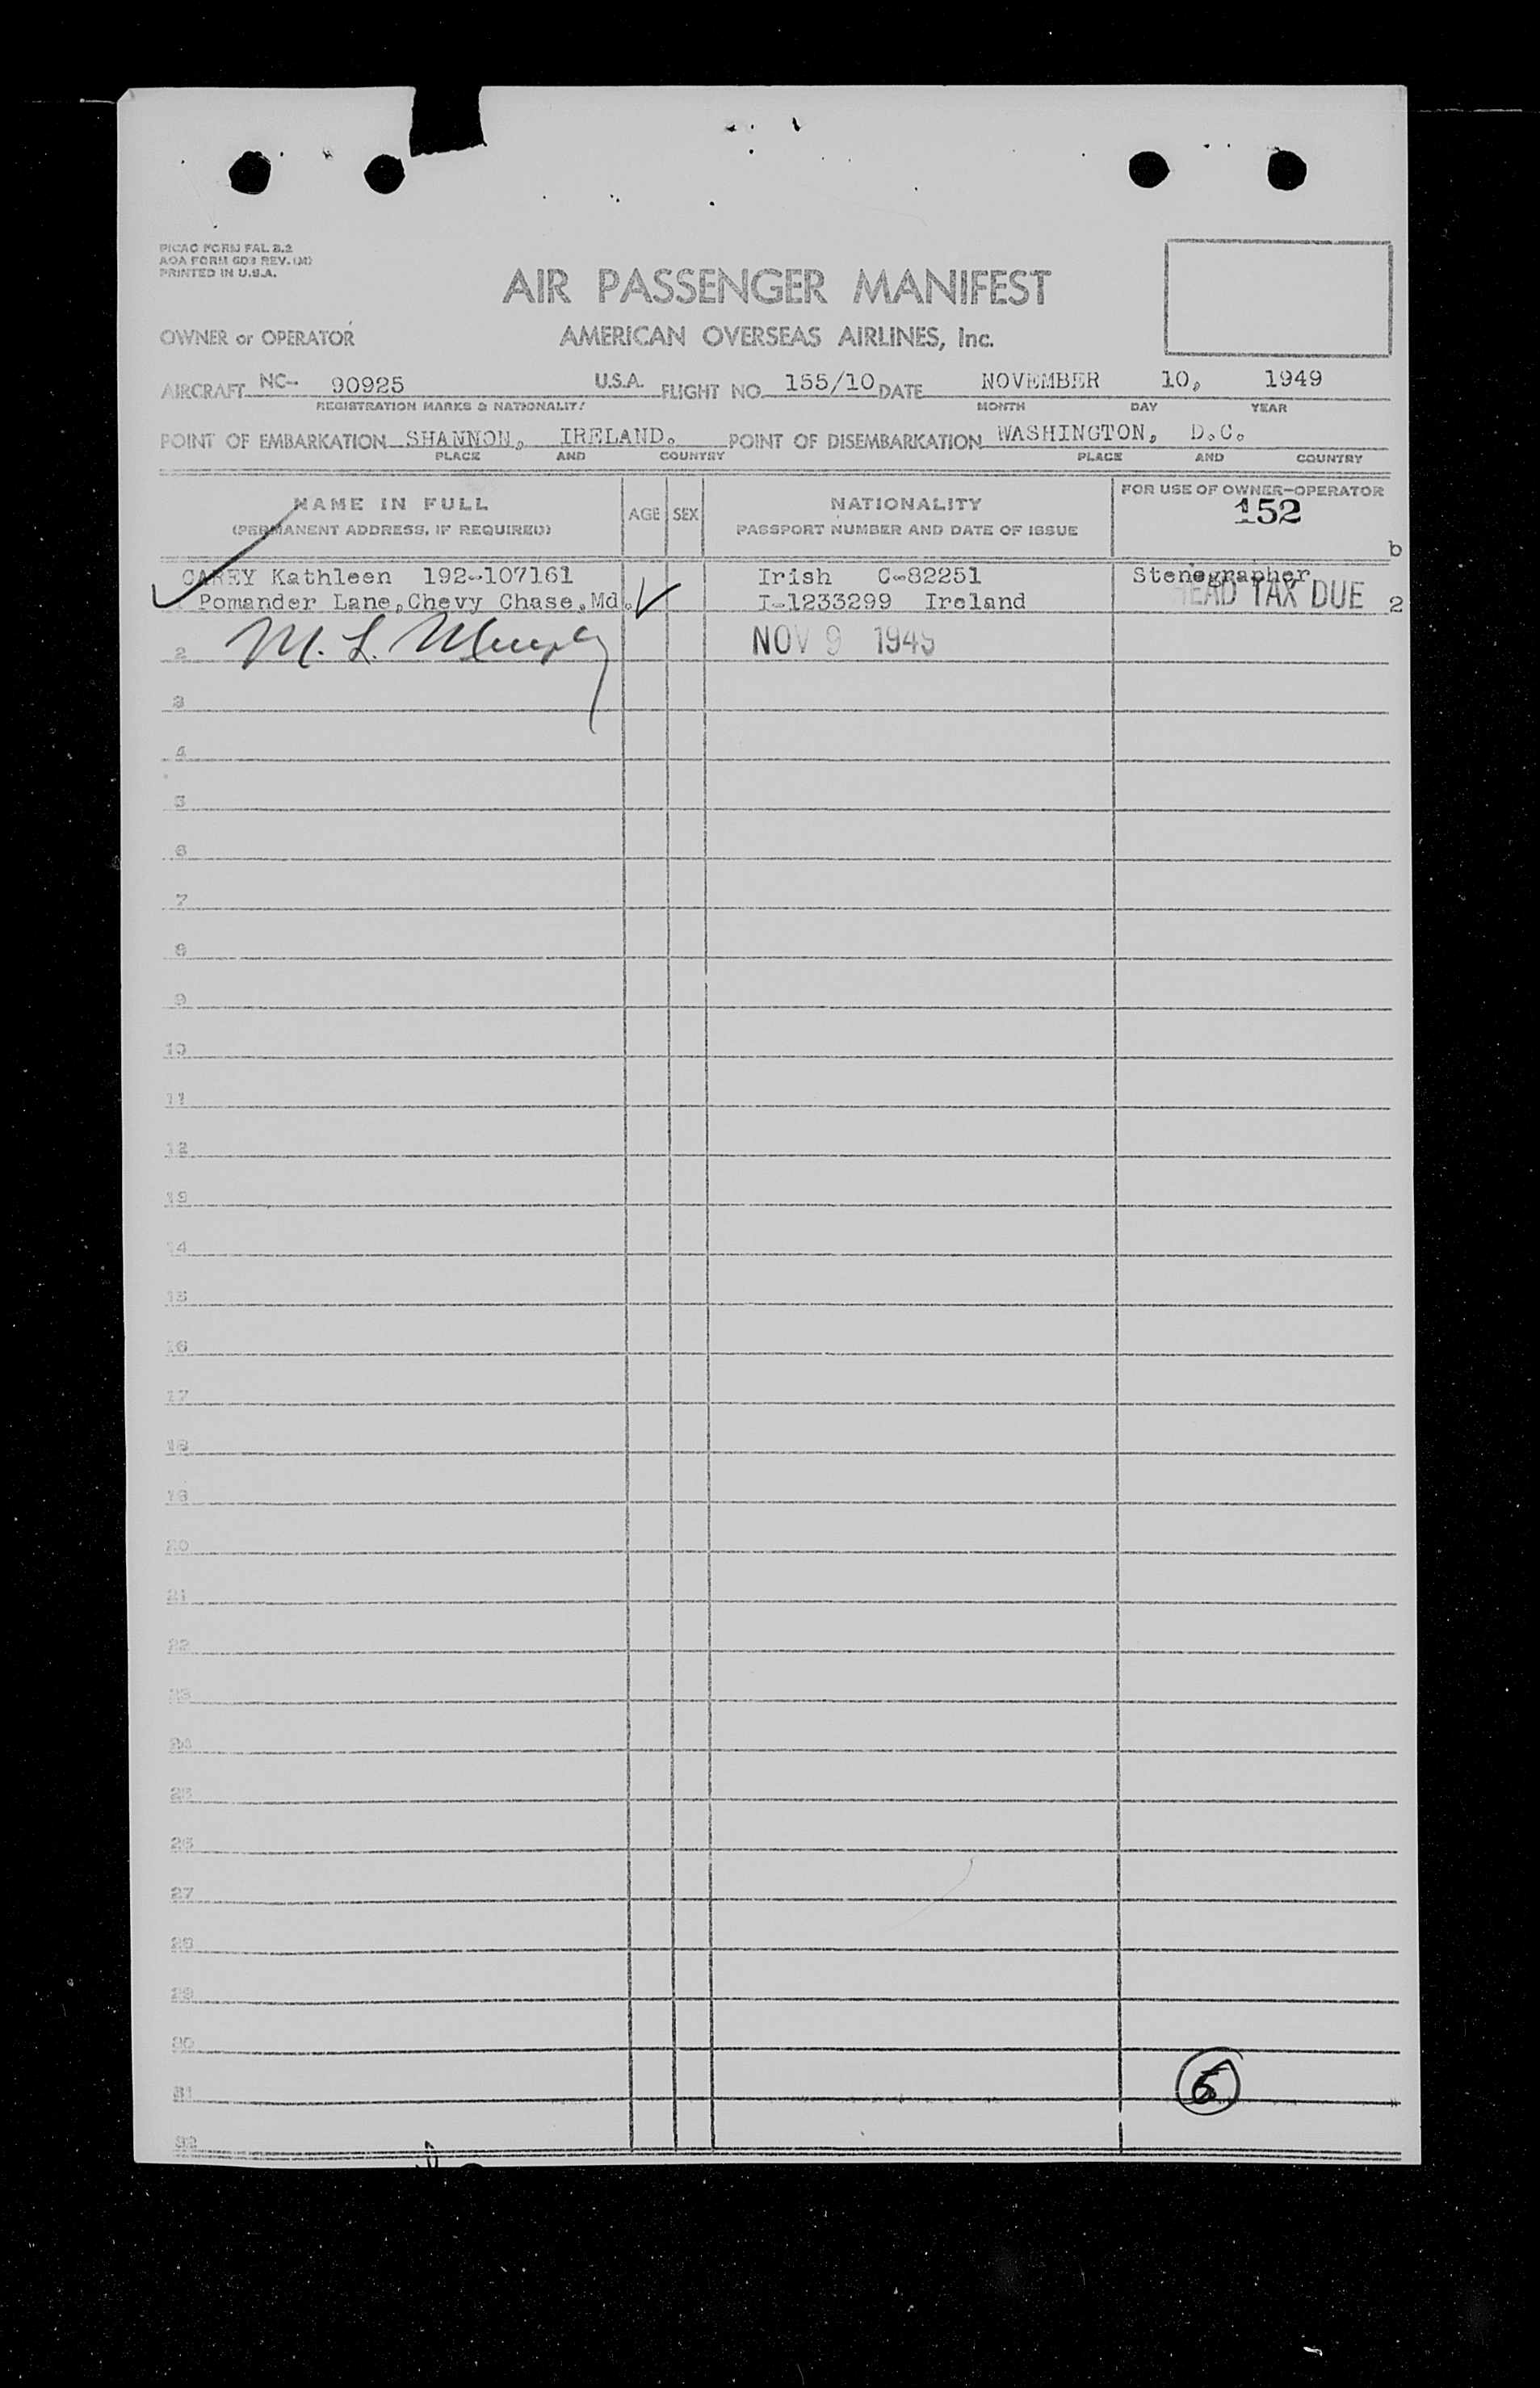 PICAO FORM FAL 2.2
AOA FORM 603 REV. (M)
PRINTED IN U.S.A.
AIR PASSENGER MANIFEST
OWNER or OPERATOR AMERICAN OVERSEAS AIRLINES, Inc.
AIRCRAFT NC- 90925 U.S.A. FLIGHT NO. 155/10 DATE NOVEMBER 10, 1949
REGISTRATION MARKS & NATIONALITY MONTH DAY YEAR
POINT OF EMBARKATION SHANNON, IRELAND. POINT OF DISEMBARKATION WASHINGTON, D.C.
PLACE AND COUNTRY PLACE AND COUNTRY
NAME IN FULL AGE SEX NATIONALITY FOR USE OF OWNER-OPERATOR
(PERMANENT ADDRESS, IF REQUIRED) PASSPORT NUMBER AND DATE OF ISSUE 152
b
CAREY Kathleen 192-107161 Irish C-82251 Stenographer
Pomander Lane, Chevy Chase, Md. I-1233299 Ireland HEAD TAX DUE 2
2 M. L. Murphy NOV 9 1949
3
4
5
6
7
8
9
10
11
12
13
14
15
16
17
18
19
20
21
22
23
24
25
26
27
28
29
30
31
32